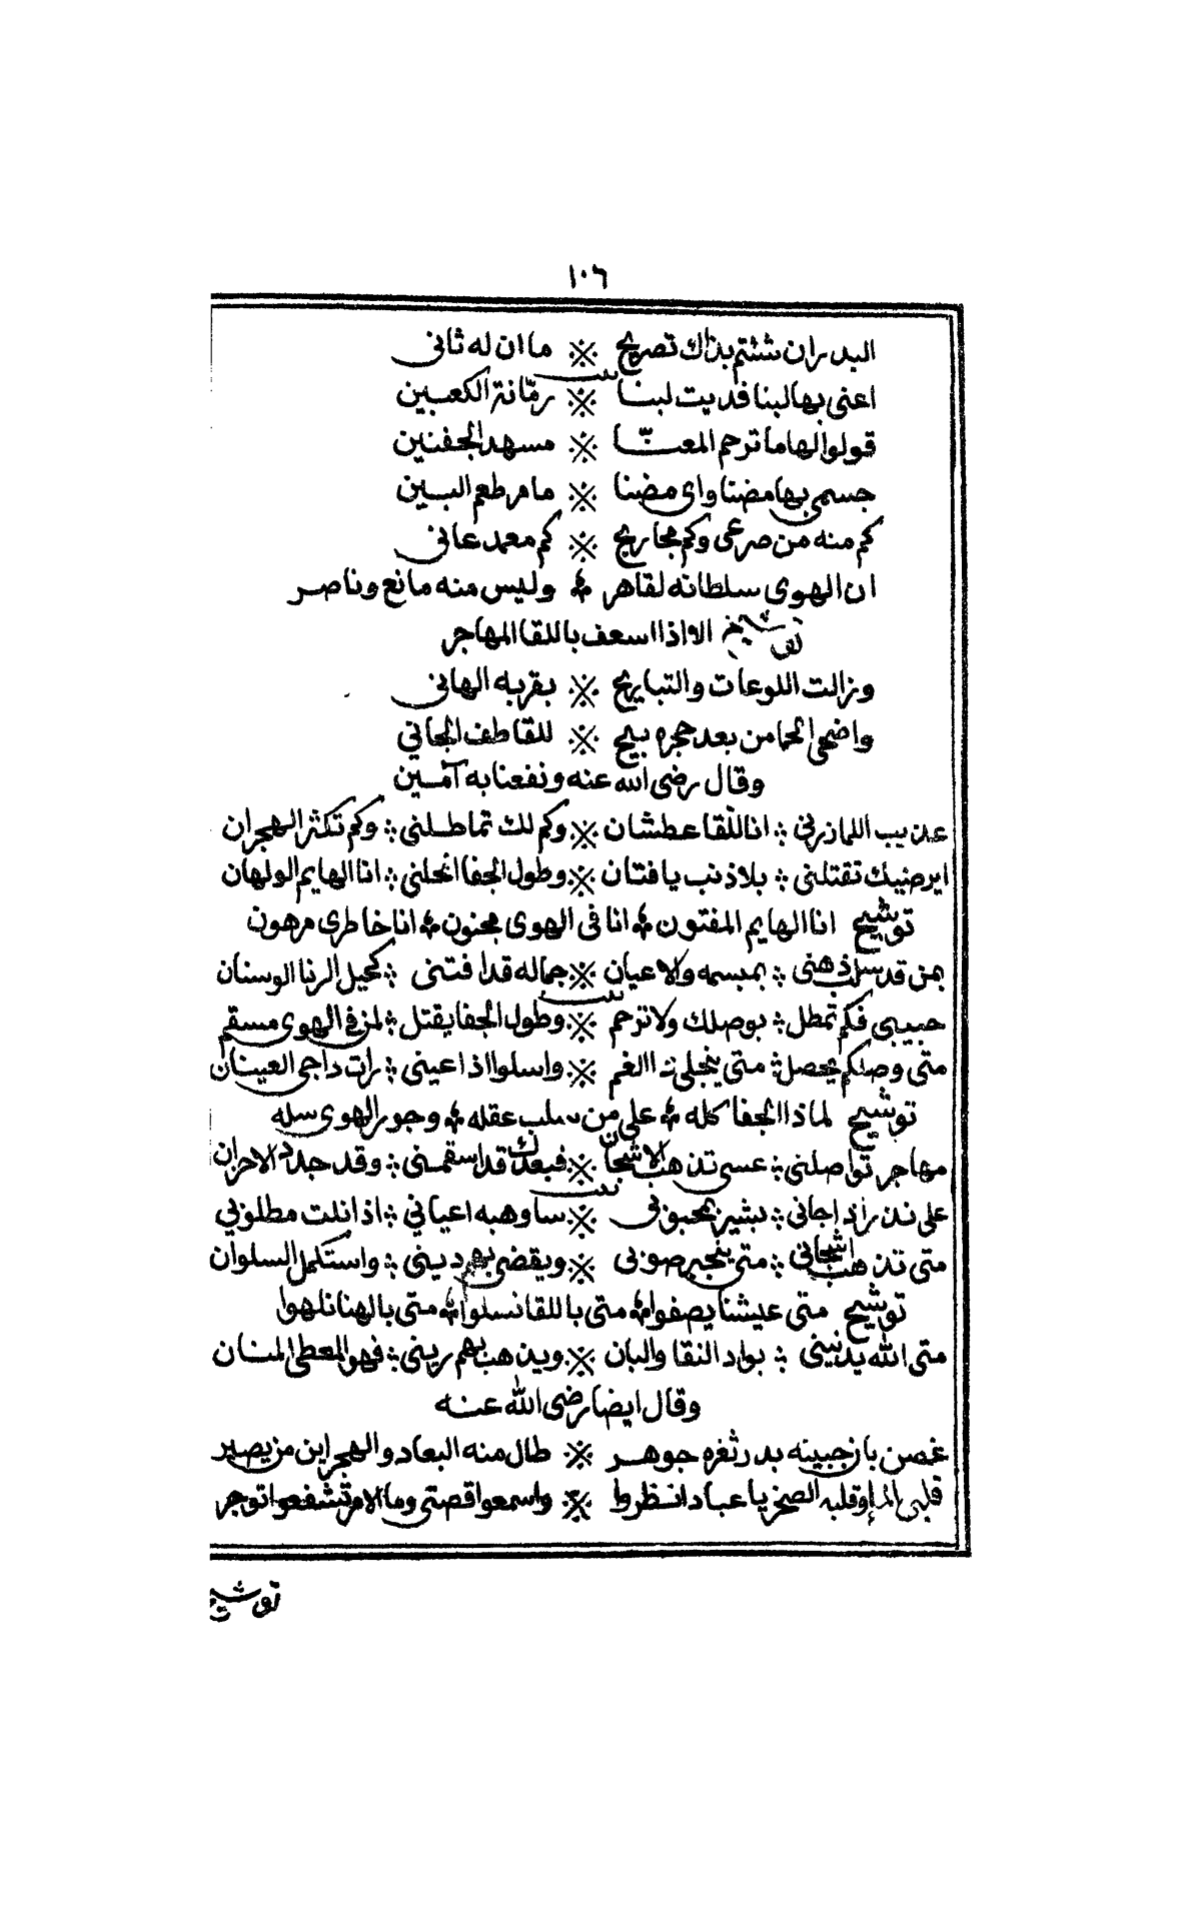 ١٠٦
البدر ان شئتم بذاك تصريح ※ ما ان له ثاني
بيت
اعني بها لبنا فديت لبنا ※ رمّانة الكعبين
قولوا لها ما ترحم المعنّا ※ مسهد الجفنين
جسمي بها مضنا واى مضنا ※ ما مر طعم البين
كم منه من صرعى وكم مجاريح ※ كم معمد عاني
ان الهوى سلطانه لقاهر ؞ وليس منه مانع وناصر
توشيح الا اذا اسعف باللقا المهاجر
وزالت اللوعات والتباريح ※ بقربه الهاني
واضحى الحما من بعد هجره بيح ※ للقاطف الجاني
وقال رضى الله عنه ونفعنا به آمين
عذيب اللما زرني ؞ انا للقا عطشان ※ وكم لك تماطلني ؞ وكم تكثر الهجران
ايرضيك تقتلني ؞ بلا ذنب يا فتان ※ وطول الجفا انحلني ؞ انا الهايم الولهان
توشيح انا الهايم المفتون ؞ انا فى الهوى مجنون ؞ انا خاطرى مرهون
بمن قد سلب ذهنى ؞ بمبسمه والاعيان ※ جماله قد افتنى ؞ كحيل الرنا الوسنان
بيت
حبيبي فكم تمطل ؞ بوصلك ولا ترحم ※ وطول الجفا يقتل ؞ لمن في الهوى مسقم
متى وصلكم يحصل ؞ متى ينجلي ذا الغم ※ واسلوا اذا عيني ؞ رات داجى العينان
توشيح لماذا الجفا كله ؞ على من سلب عقله ؞ وجور الهوى سله
مهاجر تواصلني ؞ عسى تذهب الاشجان ※ فبعدك قد اسقمنى ؞ وقد جدد الاحزان
بيت
على نذر اذا جاني ؞ بشير بمحبوبى ※ ساوهبه اعياني ؞ اذا نلت مطلوبي
متى تذهب اشجاني ؞ متى ينجبر صوبى ※ ويقضى بهم ديني ؞ واستكمل السلوان
توشيح متى عيشنا يصفوا ؞ متى باللقا نسلوا ؞ متى بالهنا نلهوا
متى الله يدنيني ؞ بواد النقا والبان ※ ويذهب بهم ريني ؞ فهو المعطى المنان
وقال ايضا رضى الله عنه
غصن بان جبينه بدر ثغره جوهر ※ طال منه البعاد والهجر اين من يصير
قلبى الما وقلبه الصخر يا عباد انظروا ※ واسمعوا قصتى وما الامر تشفعوا توجر
توشيح